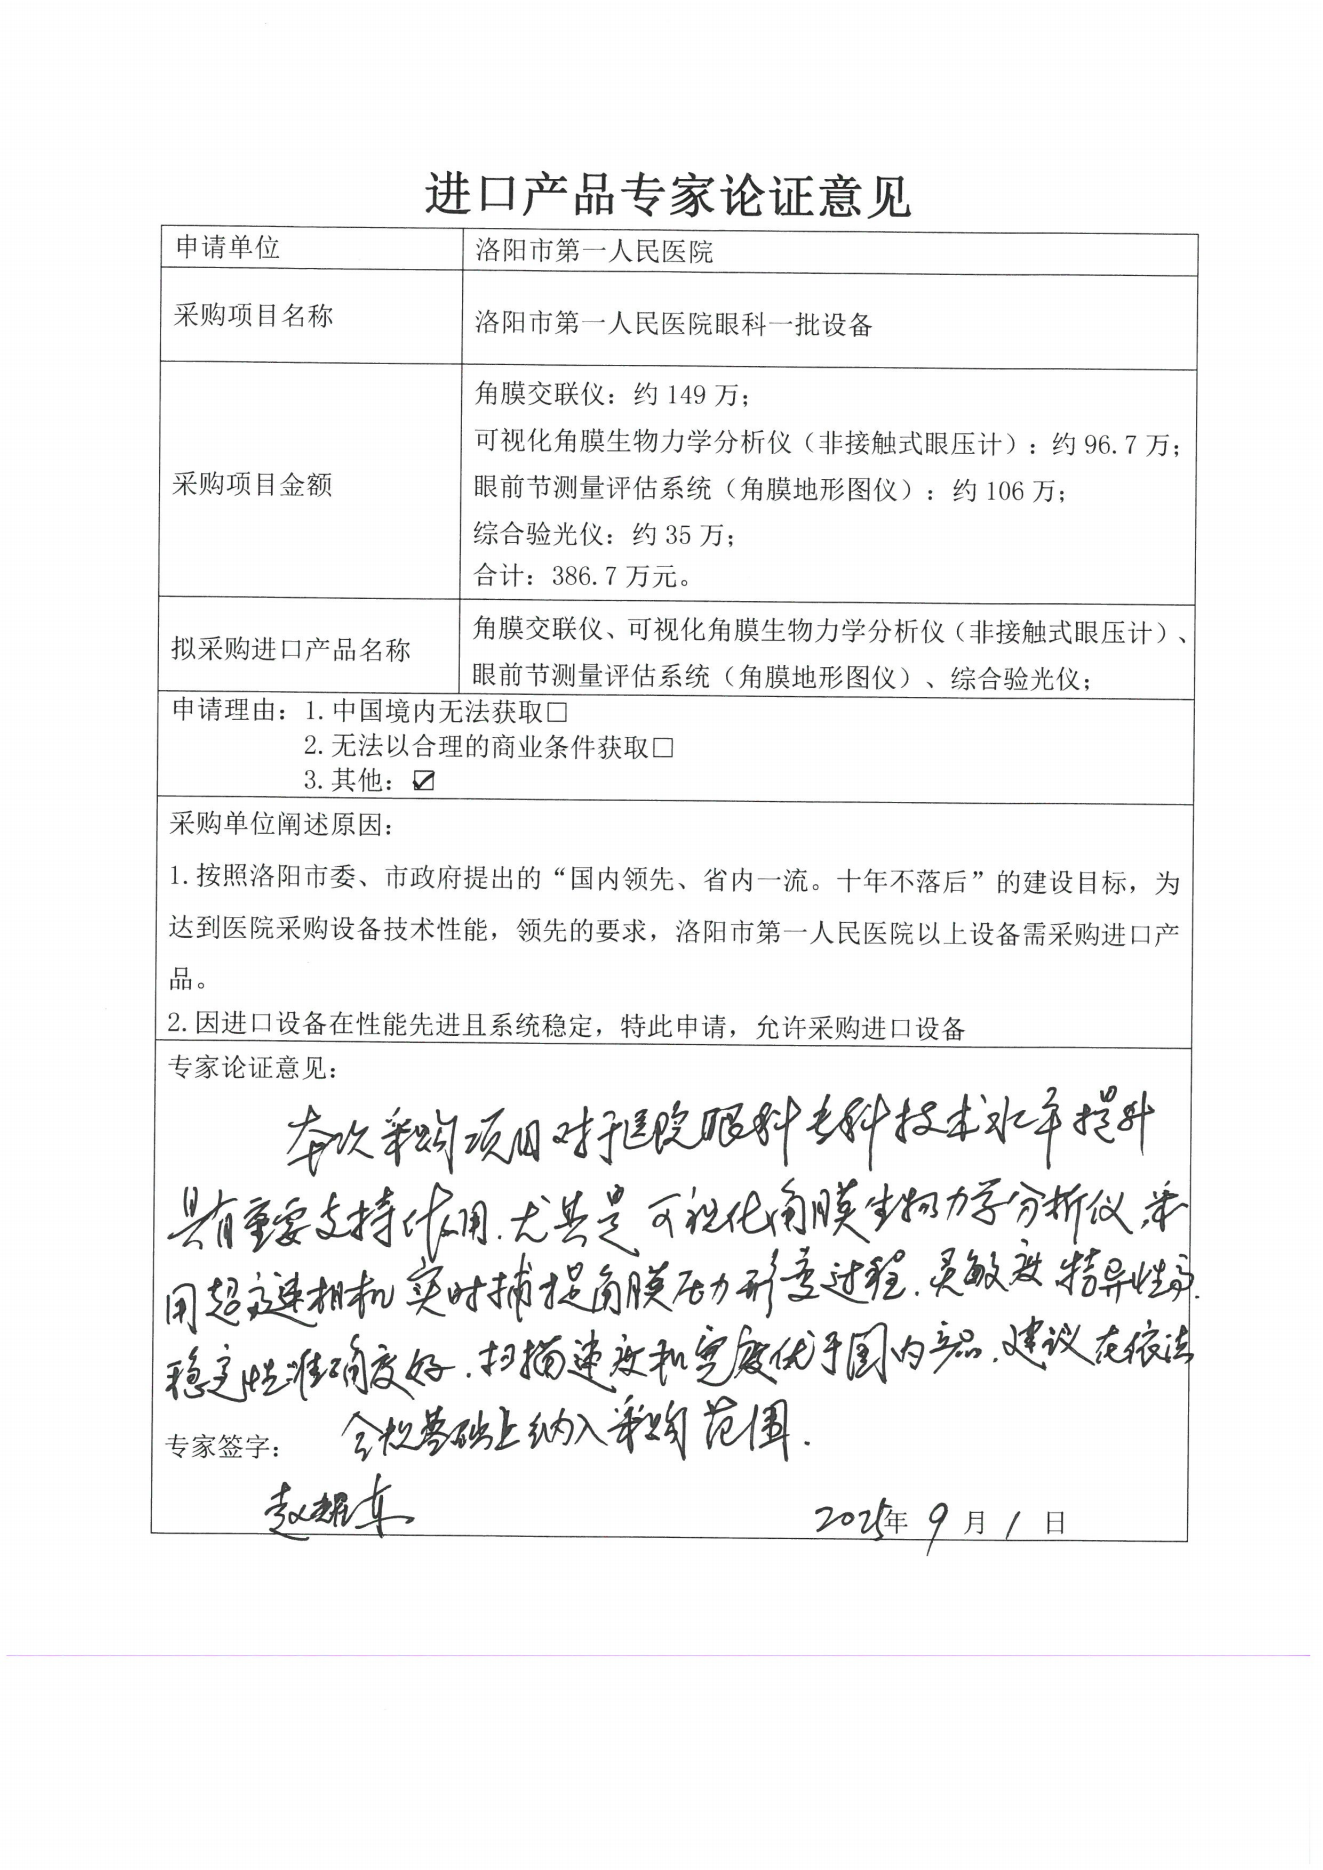 进口产品专家论证意见
申请单位
洛阳市第一人民医院
采购项目名称
洛阳市第一人民医院眼科一批设备
采购项目金额
角膜交联仪：约 149 万；
可视化角膜生物力学分析仪（非接触式眼压计）：约 96.7 万；
眼前节测量评估系统（角膜地形图仪）：约 106 万；
综合验光仪：约 35 万；
合计：386.7 万元。
拟采购进口产品名称
角膜交联仪、可视化角膜生物力学分析仪（非接触式眼压计）、
眼前节测量评估系统（角膜地形图仪）、综合验光仪；
申请理由：1.中国境内无法获取□
2.无法以合理的商业条件获取□
3.其他：☑
采购单位阐述原因：
1.按照洛阳市委、市政府提出的“国内领先、省内一流。十年不落后”的建设目标，为
达到医院采购设备技术性能，领先的要求，洛阳市第一人民医院以上设备需采购进口产
品。
2.因进口设备在性能先进且系统稳定，特此申请，允许采购进口设备
专家论证意见：
本次采购项目对于医院眼科专科技术水平提升
具有重要支持作用.尤其是可视化角膜生物力学分析仪,采
用超高速相机实时捕捉角膜压力形变过程.灵敏度特异性高.
稳定性准确度好.扫描速度和宽度优于国内产品.建议在依法
合规基础上纳入采购范围.
专家签字：
赵耀东
2025年 9 月 1 日